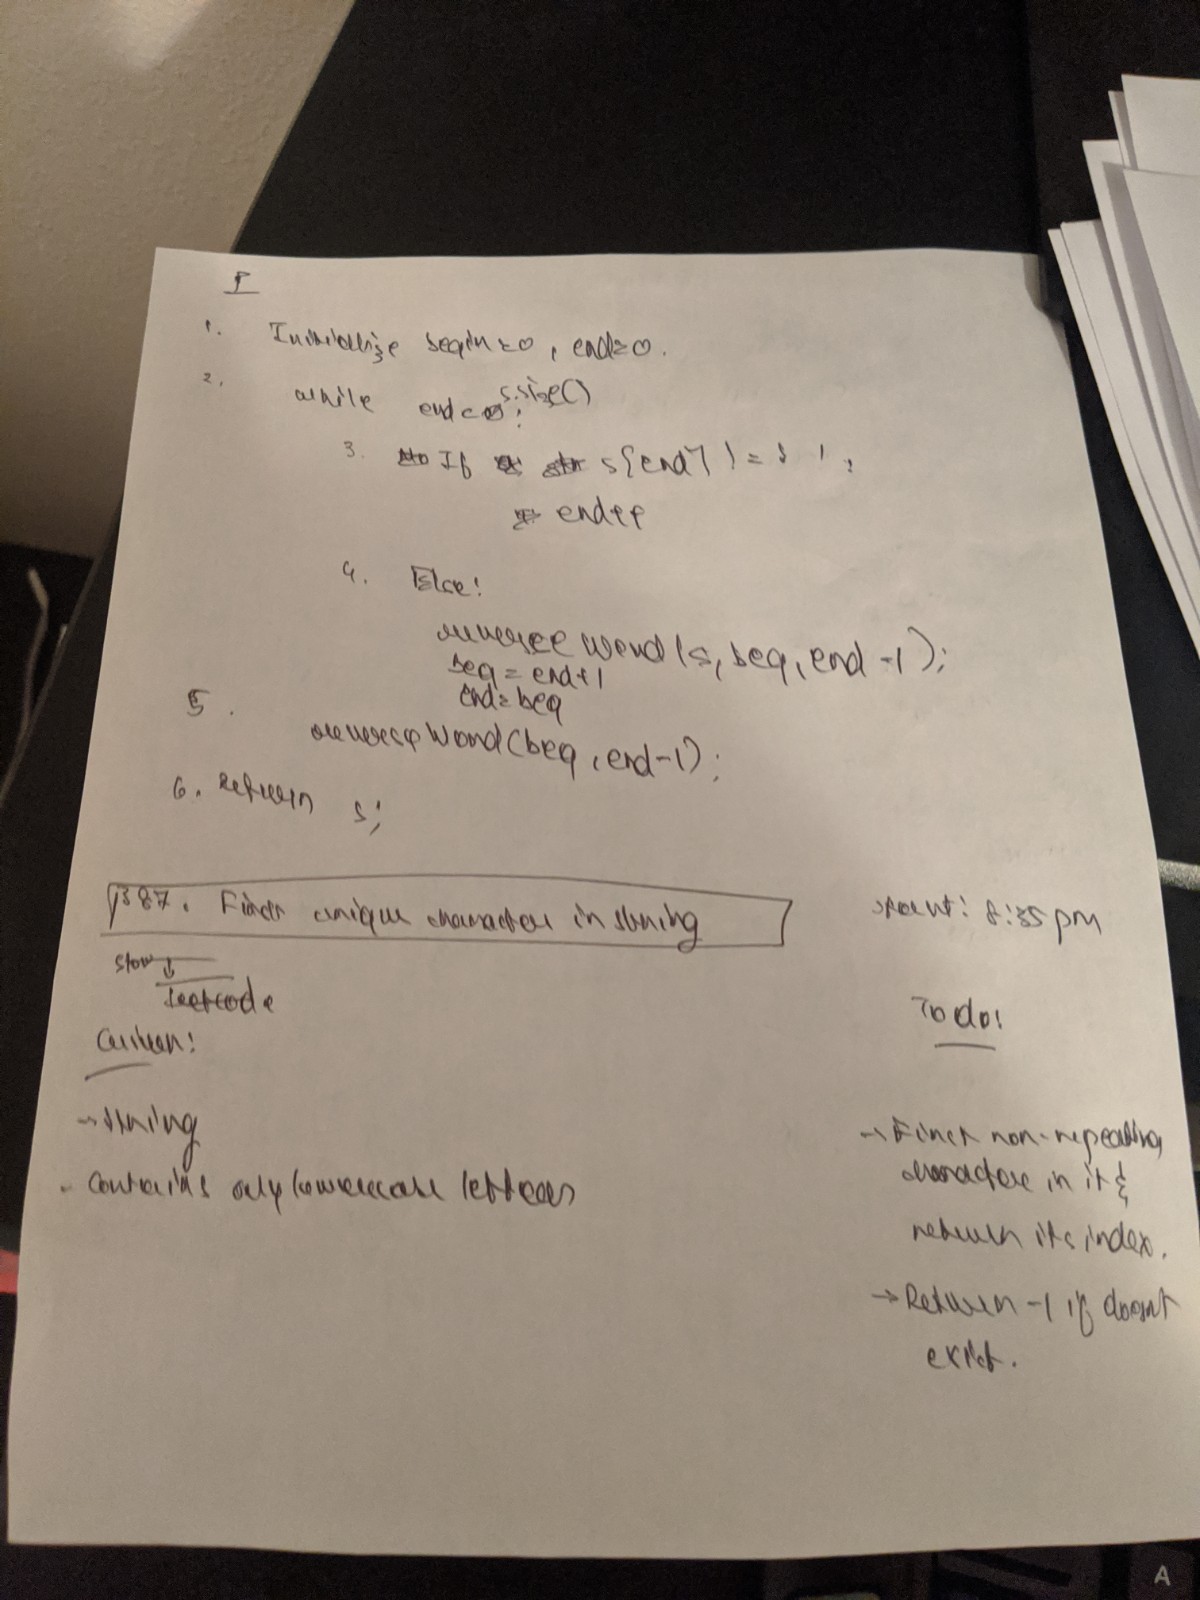 P
1. Initialize begin=0, end=0.
2. while end< s.size():
3. If s[end] != ' ':
end++
4. Else:
reverseWord(s, beg, end-1);
beg = end+1
end=beg
5.
reverseWord(beg, end-1);
6. Return s;
387. First unique character in string
Start: 8:35 pm
slow ↓
leetcode
Given:
To do:
→ string
- Contains only lowercase letters
→ First non-repeating
character in it &
return its index.
→ Return -1 if doesnt
exist.
A